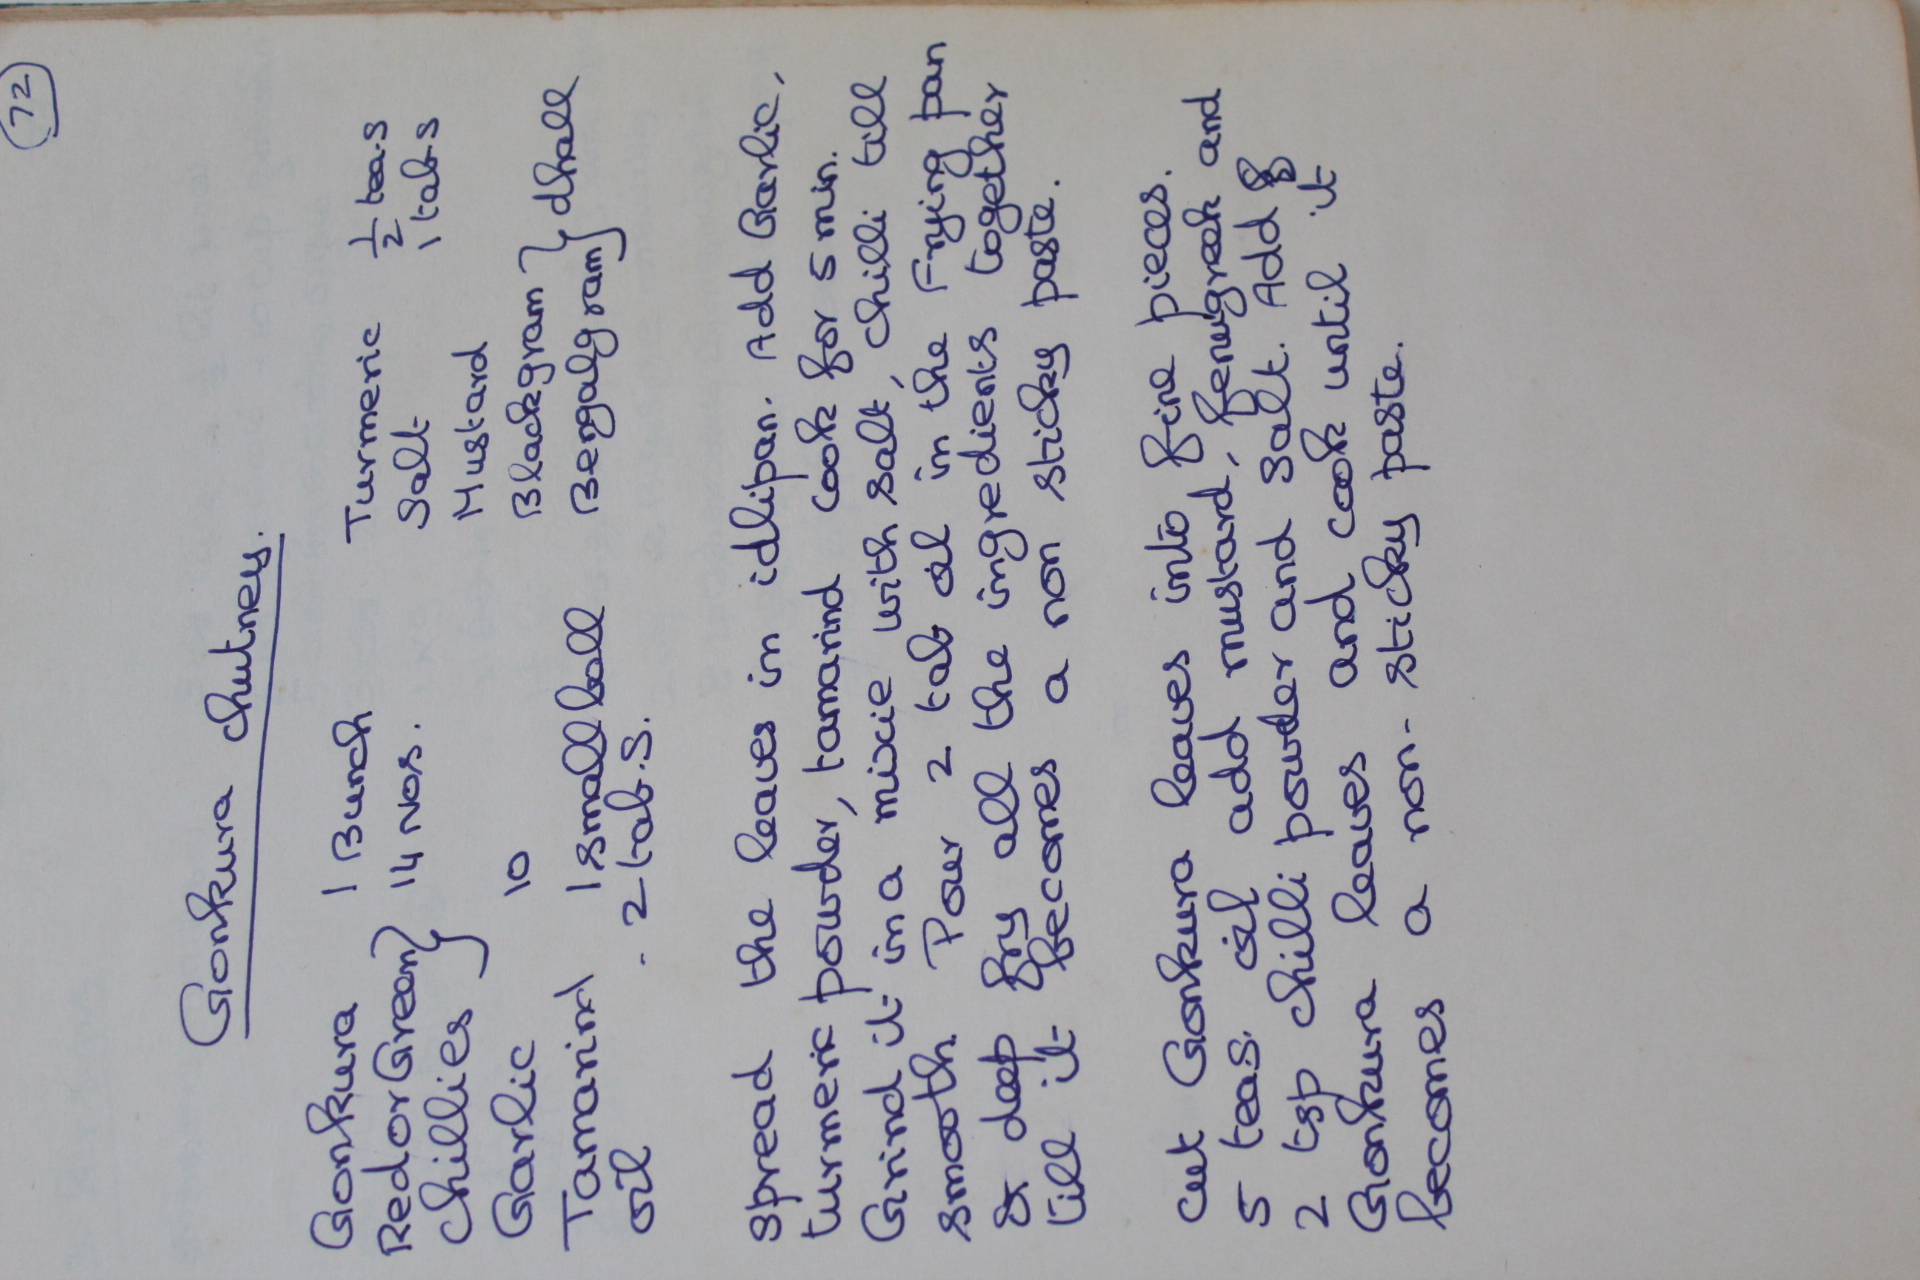 72
Gonkura chutney.
Gonkura 1 Bunch Turmeric 1/2 tea.s
Red or Green } 14 Nos. Salt 1 tab s
chillies Mustard
Garlic 10 Blackgram } dhall
Tamarind 1 small ball Bengalgram
oil . 2 tab.s.
Spread the leaves in idlipan. Add Garlic,
turmeric powder, tamarind cook for 5 min.
Grind it in a mixie with salt, chilli till
smooth. Pour 2 tab oil in the Frying pan
& deep fry all the ingredients together
till it becomes a non sticky paste.
cut Gonkura leaves into fine pieces.
5 teas. oil add mustard, fenugreek and
2 tsp chilli powder and salt. Add &
Gonkura leaves and cook until it
becomes a non-sticky paste.